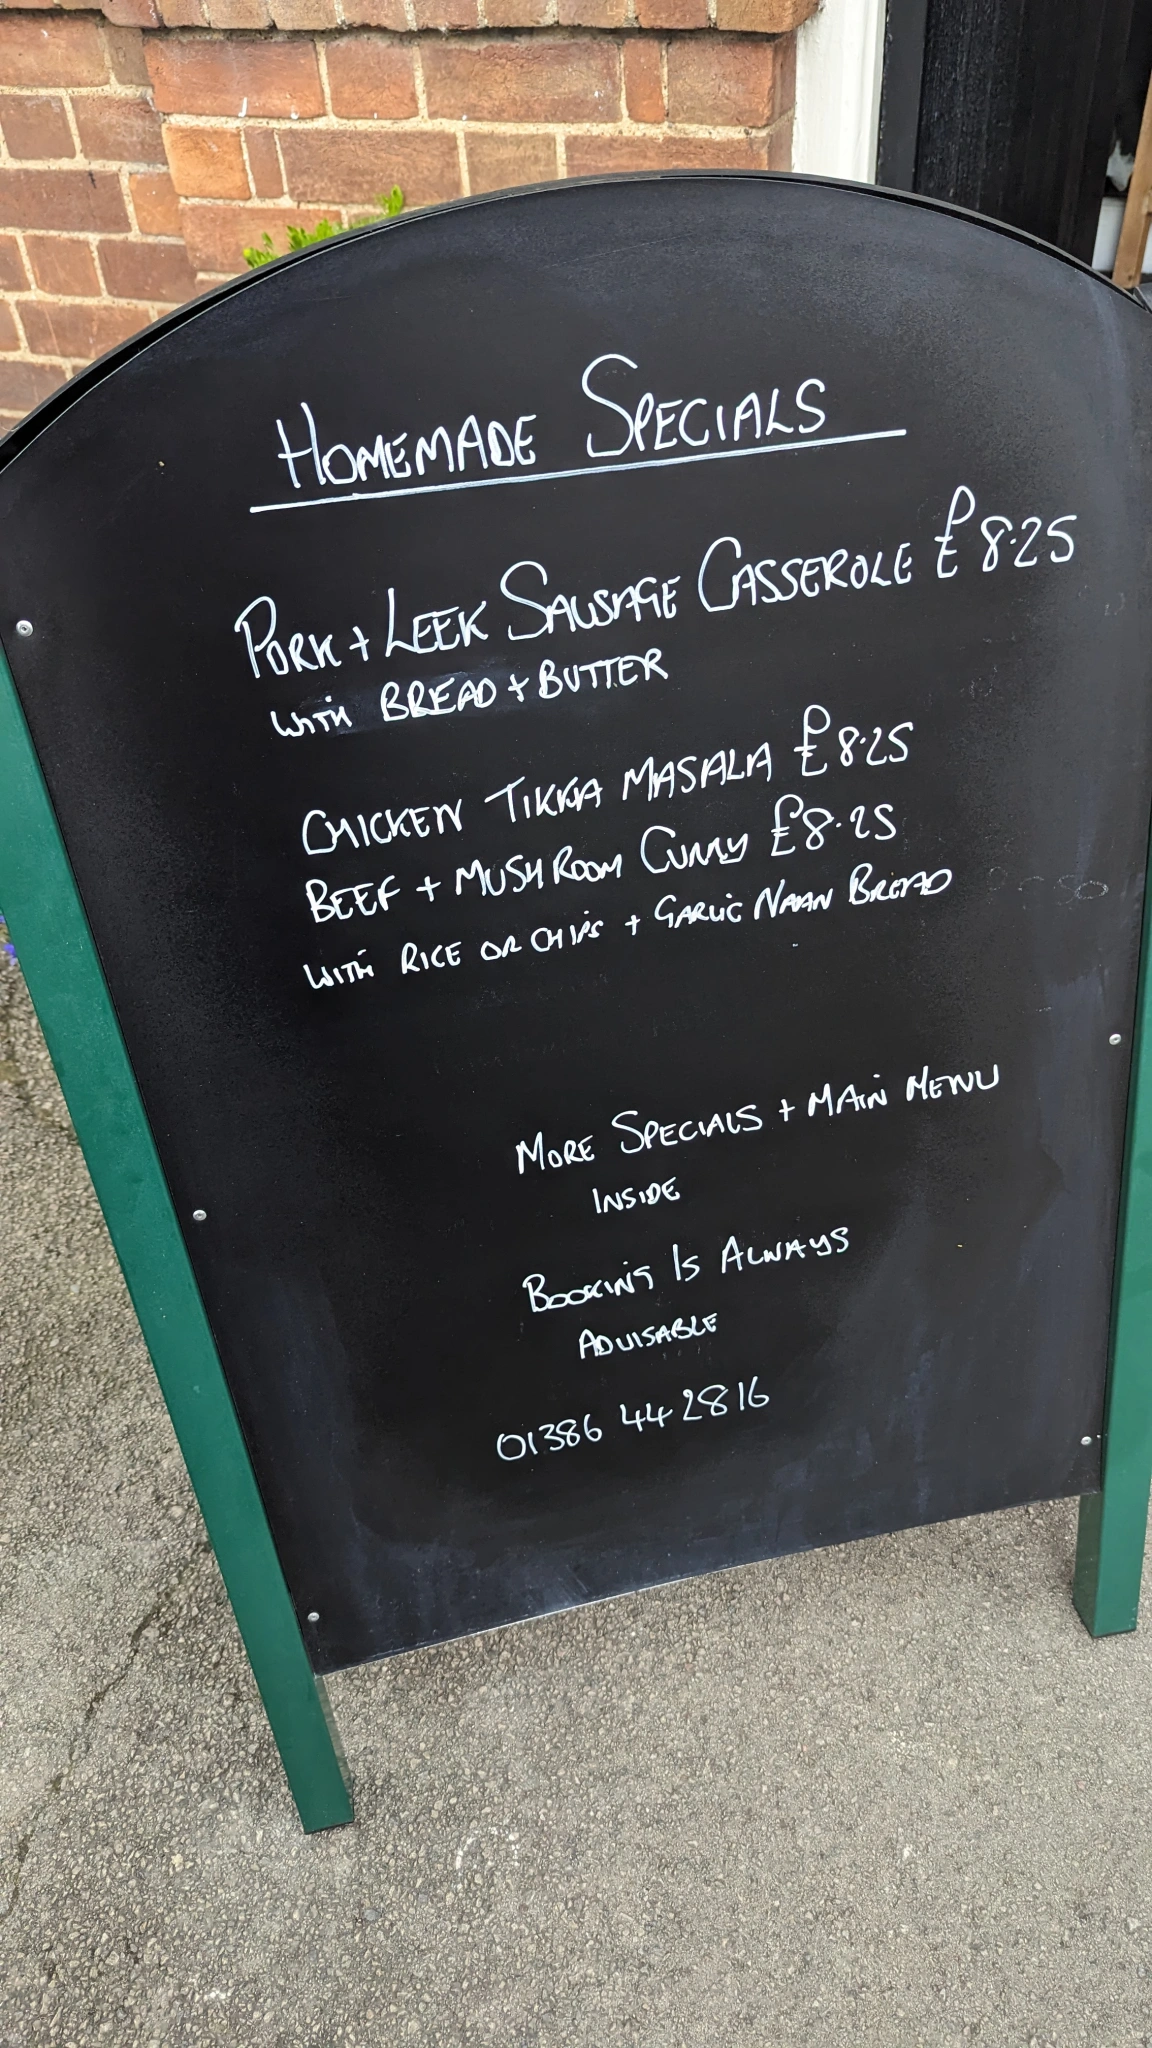 Homemade Specials
Pork + Leek Sausage Casserole £8.25
with Bread + Butter
Chicken Tikka Masala £8.25
Beef + Mushroom Curry £8.25
with Rice or Chips + Garlic Naan Bread
More Specials + Main Menu
Inside
Booking Is Always
Advisable
01386 442816